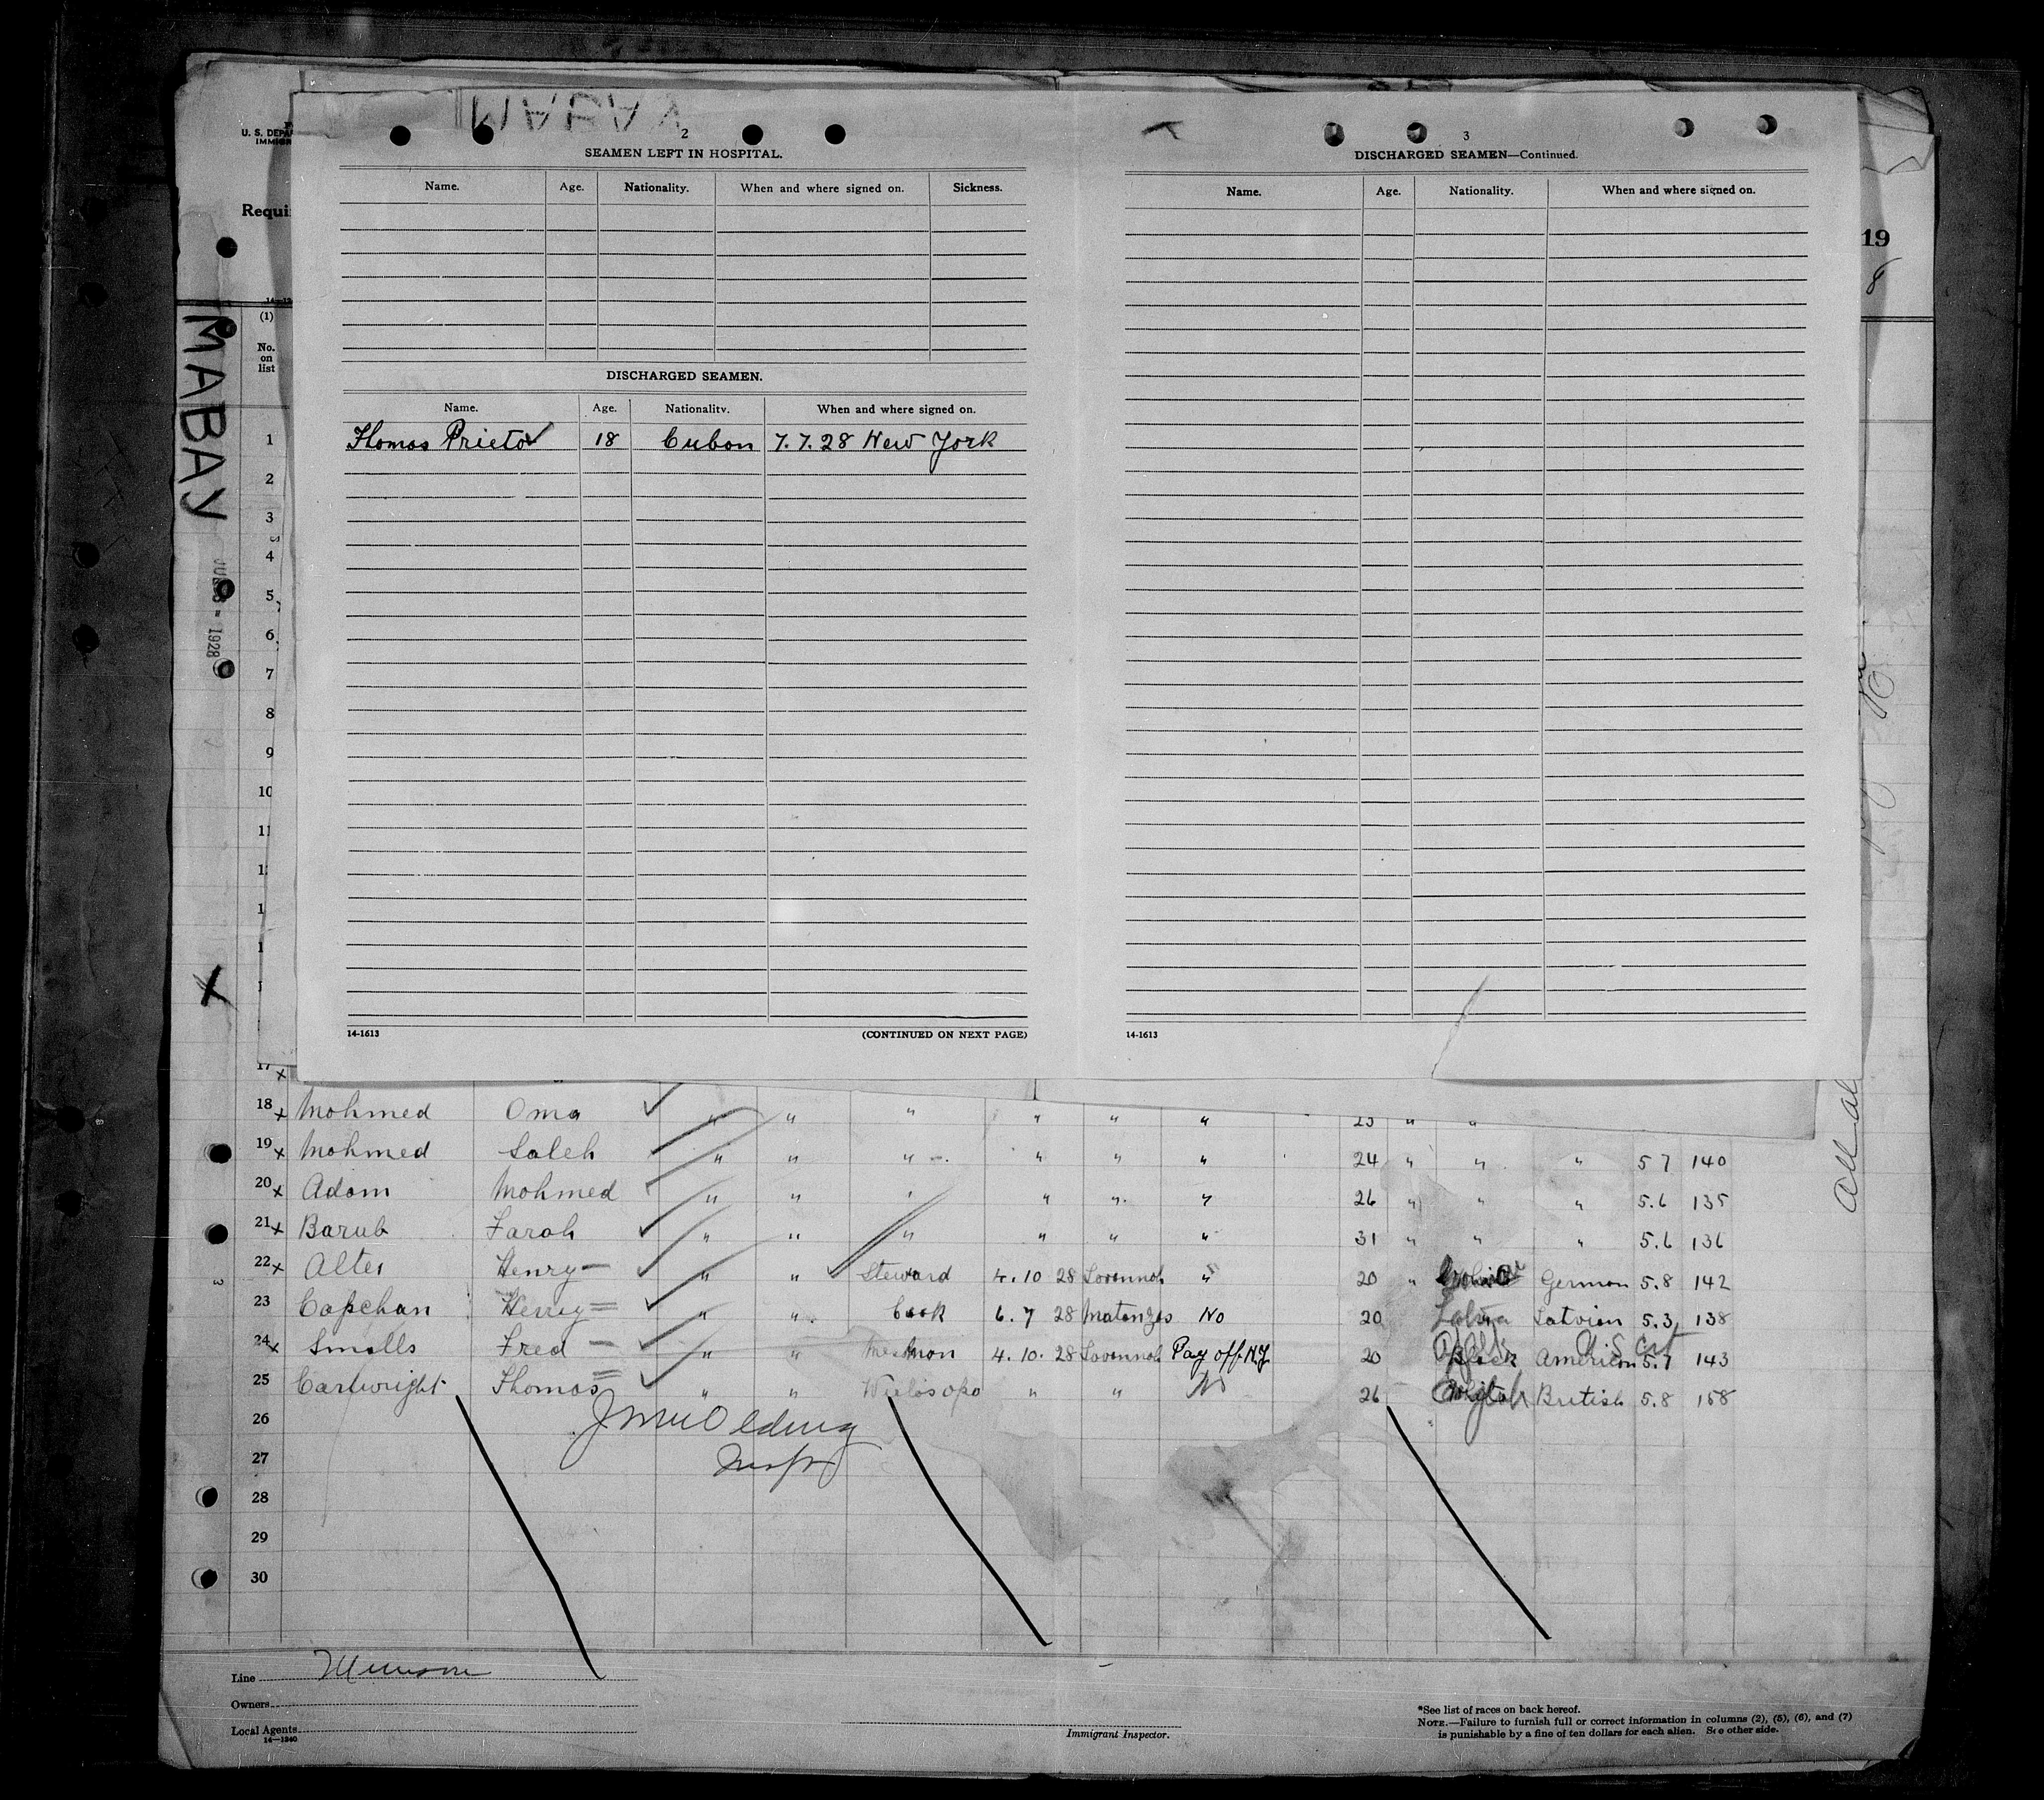 MABAY
2
SEAMEN LEFT IN HOSPITAL.
Name. Age. Nationality. When and where signed on. Sickness.
DISCHARGED SEAMEN.
Name. Age. Nationality. When and where signed on.
Thomas Prieto 18 Cuban 7.7.28 New York
14-1613 (CONTINUED ON NEXT PAGE)
3
DISCHARGED SEAMEN—Continued.
Name. Age. Nationality. When and where signed on.
14-1613
U. S. DEPA
IMMIGR
Requi
19
8
(1)
No. on list
MABAY
1928
1
2
3
4
5
6
7
8
9
10
11
17 x
18 x Mohmed Oma " " " " " " 25 " "
19 x Mohmed Saleh " " " " " " 24 " " " 5 7 140
20 x Adam Mohmed " " " " " " 26 " " " 5.6 135
21 x Barub Farah " " " " " " 31 " " " 5.6 136
22 x Alter Henry " " Steward 4.10 28 Savannah " 20 " German 5.8 142
23 Capchan Henry " " Cook 6.7 28 Matanzas No 20 Latvia Latvian 5.3 138
24 x Smalls Fred " " Messman 4.10.28 Savannah Pay off N.Y. 20 Black American 5.7 143
25 Cartwright Thomas " " " " No 26 British 5.8 158
26
27
28
29
30
Insp
Line Munson
Owners
Local Agents
14—1240
Immigrant Inspector.
*See list of races on back hereof.
NOTE.—Failure to furnish full or correct information in columns (2), (5), (6), and (7)
is punishable by a fine of ten dollars for each alien. See other side.